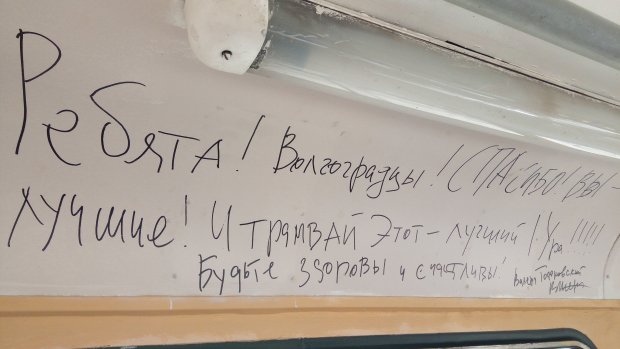 Ребята! Волгоградцы! Спасибо! Вы -
лучшие! И трамвай этот - лучший! Ура!!!!!
Будьте здоровы и счастливы!
Тодоровский